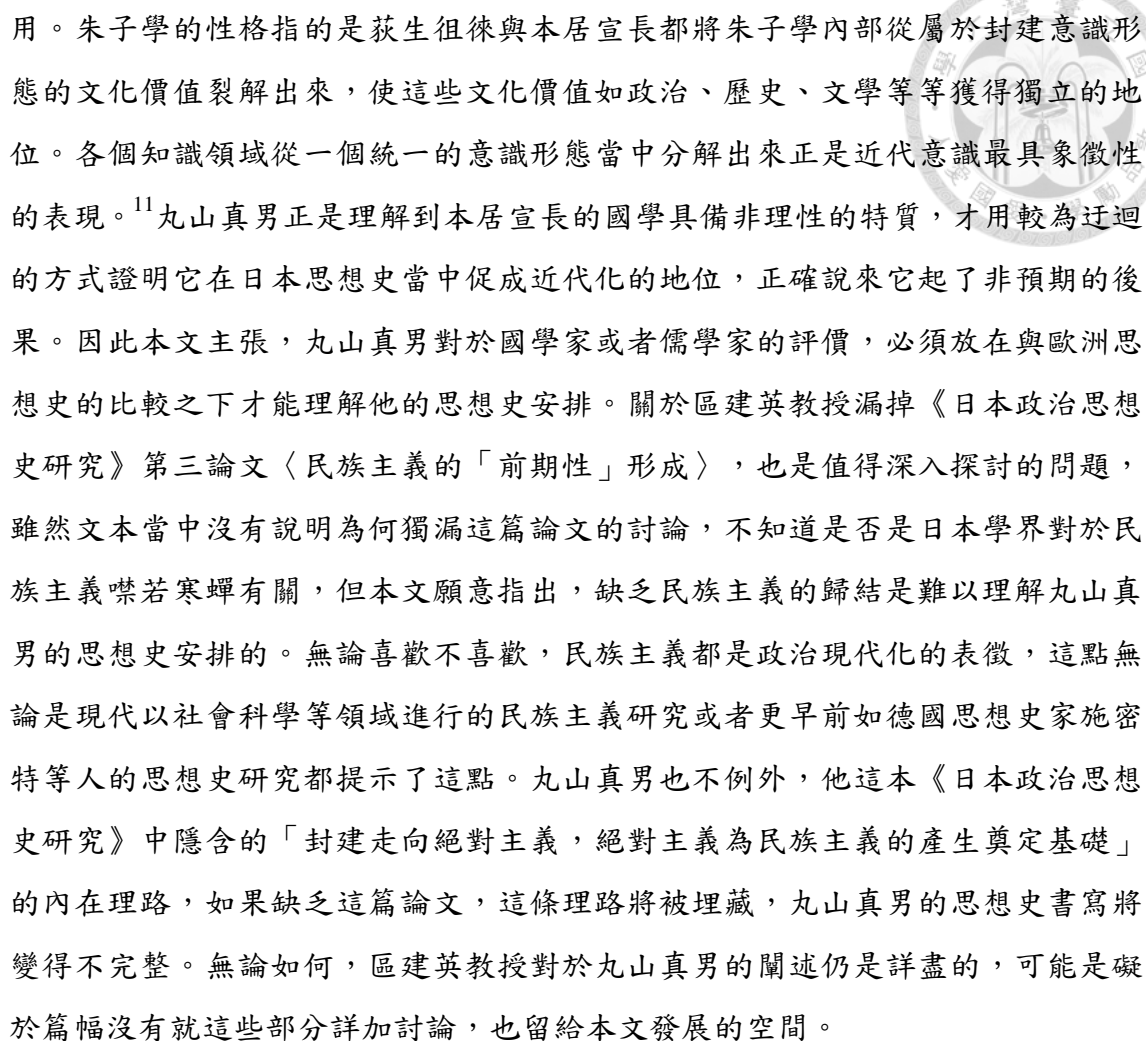 用。朱子學的性格指的是荻生徂徠與本居宣長都將朱子學內部從屬於封建意識形
態的文化價值裂解出來，使這些文化價值如政治、歷史、文學等等獲得獨立的地
位。各個知識領域從一個統一的意識形態當中分解出來正是近代意識最具象徵性
的表現。11丸山真男正是理解到本居宣長的國學具備非理性的特質，才用較為迂迴
的方式證明它在日本思想史當中促成近代化的地位，正確說來它起了非預期的後
果。因此本文主張，丸山真男對於國學家或者儒學家的評價，必須放在與歐洲思
想史的比較之下才能理解他的思想史安排。關於區建英教授漏掉《日本政治思想
史研究》第三論文〈民族主義的「前期性」形成〉，也是值得深入探討的問題，
雖然文本當中沒有說明為何獨漏這篇論文的討論，不知道是否是日本學界對於民
族主義噤若寒蟬有關，但本文願意指出，缺乏民族主義的歸結是難以理解丸山真
男的思想史安排的。無論喜歡不喜歡，民族主義都是政治現代化的表徵，這點無
論是現代以社會科學等領域進行的民族主義研究或者更早前如德國思想史家施密
特等人的思想史研究都提示了這點。丸山真男也不例外，他這本《日本政治思想
史研究》中隱含的「封建走向絕對主義，絕對主義為民族主義的產生奠定基礎」
的內在理路，如果缺乏這篇論文，這條理路將被埋藏，丸山真男的思想史書寫將
變得不完整。無論如何，區建英教授對於丸山真男的闡述仍是詳盡的，可能是礙
於篇幅沒有就這些部分詳加討論，也留給本文發展的空間。